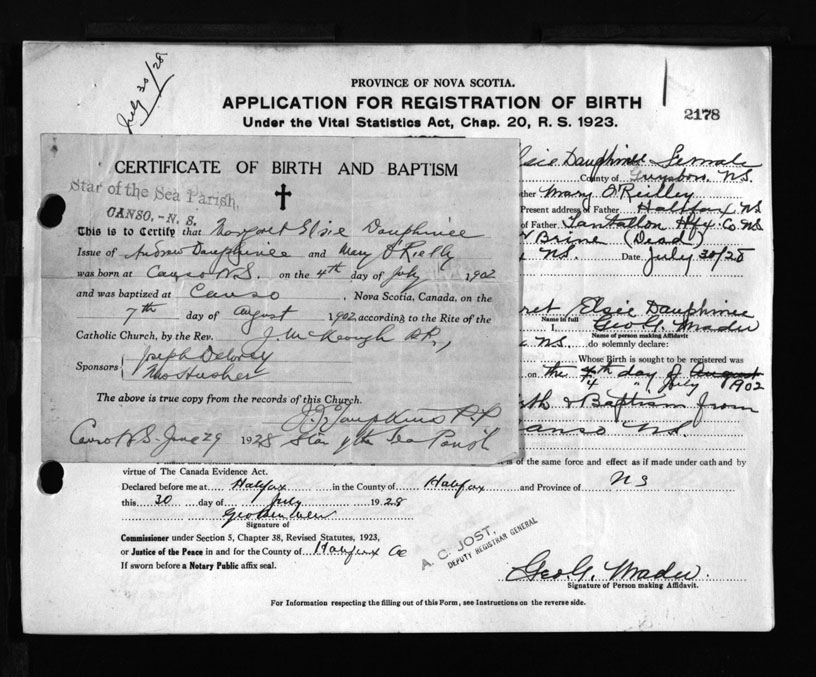 July 30/28
PROVINCE OF NOVA SCOTIA.
APPLICATION FOR REGISTRATION OF BIRTH
Under the Vital Statistics Act, Chap. 20, R. S. 1923.
2178
CERTIFICATE OF BIRTH AND BAPTISM
Star of the Sea Parish,
CANSO, - N. S.
This is to Certify that Margaret Elsie Dauphinee
Issue of Andrew Dauphinee and Mary O'Rielly
was born at Canso N.S. on the 4th day of July 1902
and was baptized at Canso, Nova Scotia, Canada, on the
7th day of August 1902, according to the Rite of the
Catholic Church, by the Rev. J. McKeough P.P.,
Sponsors Joseph Delorey
Husher
The above is true copy from the records of this Church.
J. J. Tompkins P.P.
Canso N.S. June 29 1928 Star of the Sea Parish
Elsie Dauphinee Female
County of Guysboro N.S.
ther Mary O'Reilley
Present address of Father Halifax N.S
of Father Tantallon Hfx Co. N.S
Brine (Dead)
N.S. Date July 30/28
ret Elsie Dauphinee
Name in full
I, Geo. G. Mader
Name of person making Affidavit
N.S. do solemnly declare:
Whose Birth is sought to be registered was
on the 4th day of August
4 " " July 1902
th & Baptism from
anso N.S.
is of the same force and effect as if made under oath and by
virtue of The Canada Evidence Act.
Declared before me at Halifax in the County of Halifax and Province of N S
this 30 day of July 1928
Signature of
Commissioner under Section 5, Chapter 38, Revised Statutes, 1923,
or Justice of the Peace in and for the County of Halifax Co
If sworn before a Notary Public affix seal.
A. C. JOST,
DEPUTY REGISTRAR GENERAL
Geo. G. Mader.
Signature of Person making Affidavit.
For Information respecting the filling out of this Form, see Instructions on the reverse side.